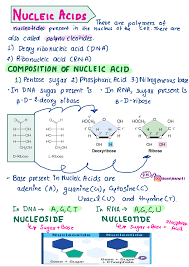 NUCLEIC ACIDS
These are polymers of
nucleotides present in the nucleus of the cell. There are
also called polynucleotides.
1) Deoxy ribonucleic acid (DNA)
2) Ribonucleic acid (RNA)
COMPOSITION OF NUCLEIC ACID
1) Pentose sugar 2) Phosphoric Acid 3) Nitrogeneous base
• In DNA sugar present is
β-D-2-deoxy ribose
• In RNA, sugar present is
β-D-ribose
Deoxyribose
Ribose
• Base present in Nucleic acids are
adenine (A), guanine (G), cytosine (C)
Uracil (U) and thymine (T)
In DNA → A, G, C, T
In RNA → A, G, C, U
NUCLEOSIDE
↳ Sugar + Base
NUCLEOTIDE
↳ Sugar + Base +
Phosphoric Acid
Nucleoside
Nucleotide
Base + Sugar
Base + Sugar + Phosphate